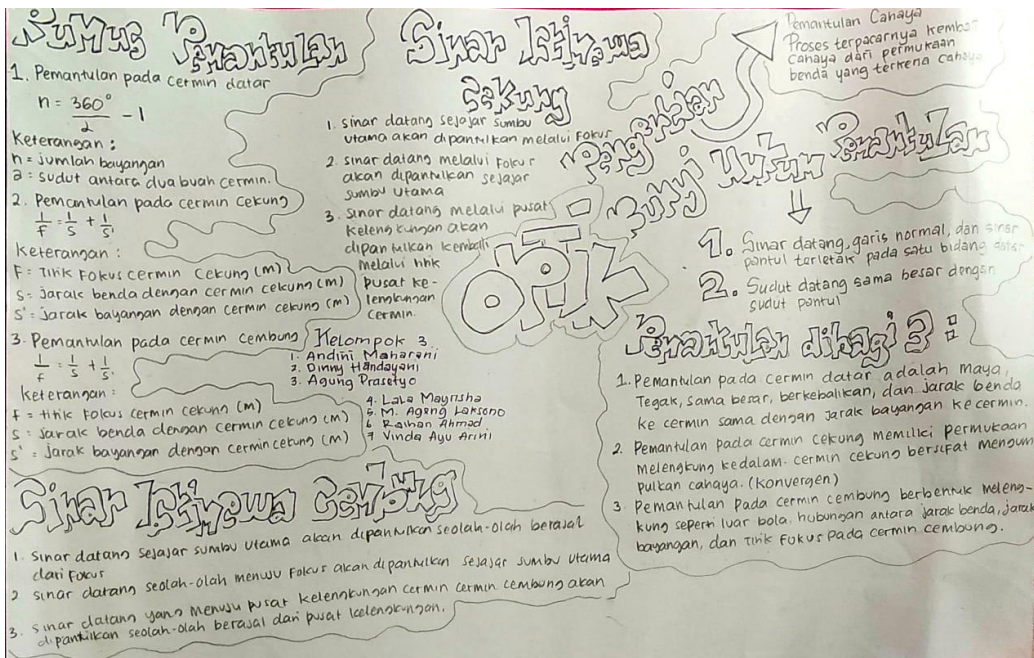 Rumus Pemantulan
1. Pemantulan pada cermin datar
n = 360° - 1
2
Keterangan :
n = jumlah bayangan
a = sudut antara dua buah cermin.
2. Pemantulan pada cermin cekung
1/f = 1/s + 1/s'
keterangan :
F = Titik Fokus cermin cekung (m)
S = jarak benda dengan cermin cekung (m)
S' = jarak bayangan dengan cermin cekung (m)
3. Pemantulan pada cermin cembung
1/f = 1/s + 1/s'
keterangan :
f = titik fokus cermin cekung (m)
s = jarak benda dengan cermin cekung (m)
s' = jarak bayangan dengan cermin cekung (m)
Sinar Istimewa
Cekung
1. sinar datang sejajar sumbu
utama akan dipantulkan melalui Fokus
2. sinar datang melalui Fokus
akan dipantulkan sejajar
sumbu utama
3. sinar datang melalui pusat
kelengkungan akan
dipantulkan kembali
melalui titik
pusat ke-
lengkungan
cermin.
OPTIK
Kelompok 3
1. Andini Maharani
2. Dinny Handayani
3. Agung Prasetyo
4. Lala Mayrisha
5. M. Agung Laksono
6 Raihan Ahmad
7 Vinda Ayu Arini
Pengertian
Pemantulan Cahaya
Proses terpacarnya kembali
cahaya dari permukaan
benda yang terkena cahaya
Bunyi Hukum Pemantulan
1. Sinar datang, garis normal, dan sinar
pantul terletak pada satu bidang datar
2. Sudut datang sama besar dengan
sudut pantul
Pemantulan dibagi 3 :
1. Pemantulan pada cermin datar adalah maya,
Tegak, sama besar, berkebalikan, dan jarak benda
ke cermin sama dengan jarak bayangan ke cermin.
2. Pemantulan pada cermin cekung memiliki permukaan
melengkung kedalam. cermin cekung bersifat mengum
pulkan cahaya. (Konvergen)
3 Pemantulan Pada cermin cembung berbentuk meleng-
kung seperti luar bola. hubungan antara jarak benda, jarak
bayangan, dan titik fokus pada cermin cembung.
Sinar Istimewa Cembung
1. Sinar datang sejajar sumbu utama akan dipantulkan seolah-olah berasal
dari Fokus
2 sinar datang seolah-olah menuju Fokus akan dipantulkan sejajar sumbu utama
3. sinar datang yang menuju pusat kelengkungan cermin cermin cembung akan
dipantulkan seolah-olah berasal dari pusat kelengkungan.